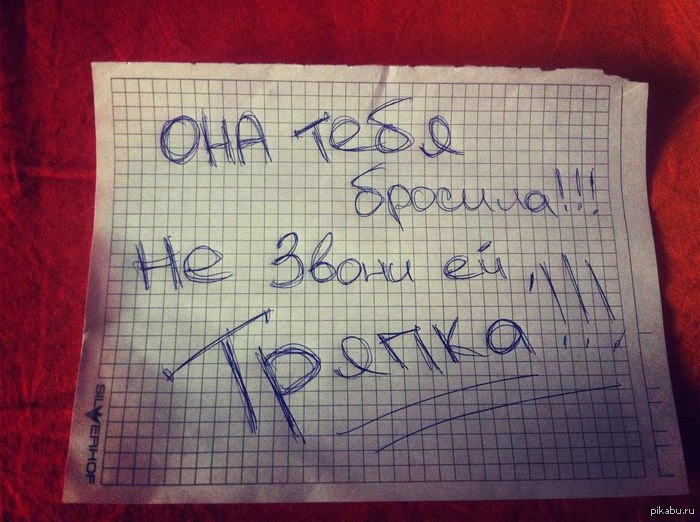 ОНА тебя
бросила!!!
Не Звони ей,
Тряпка!!!
SILWERHOF
pikabu.ru